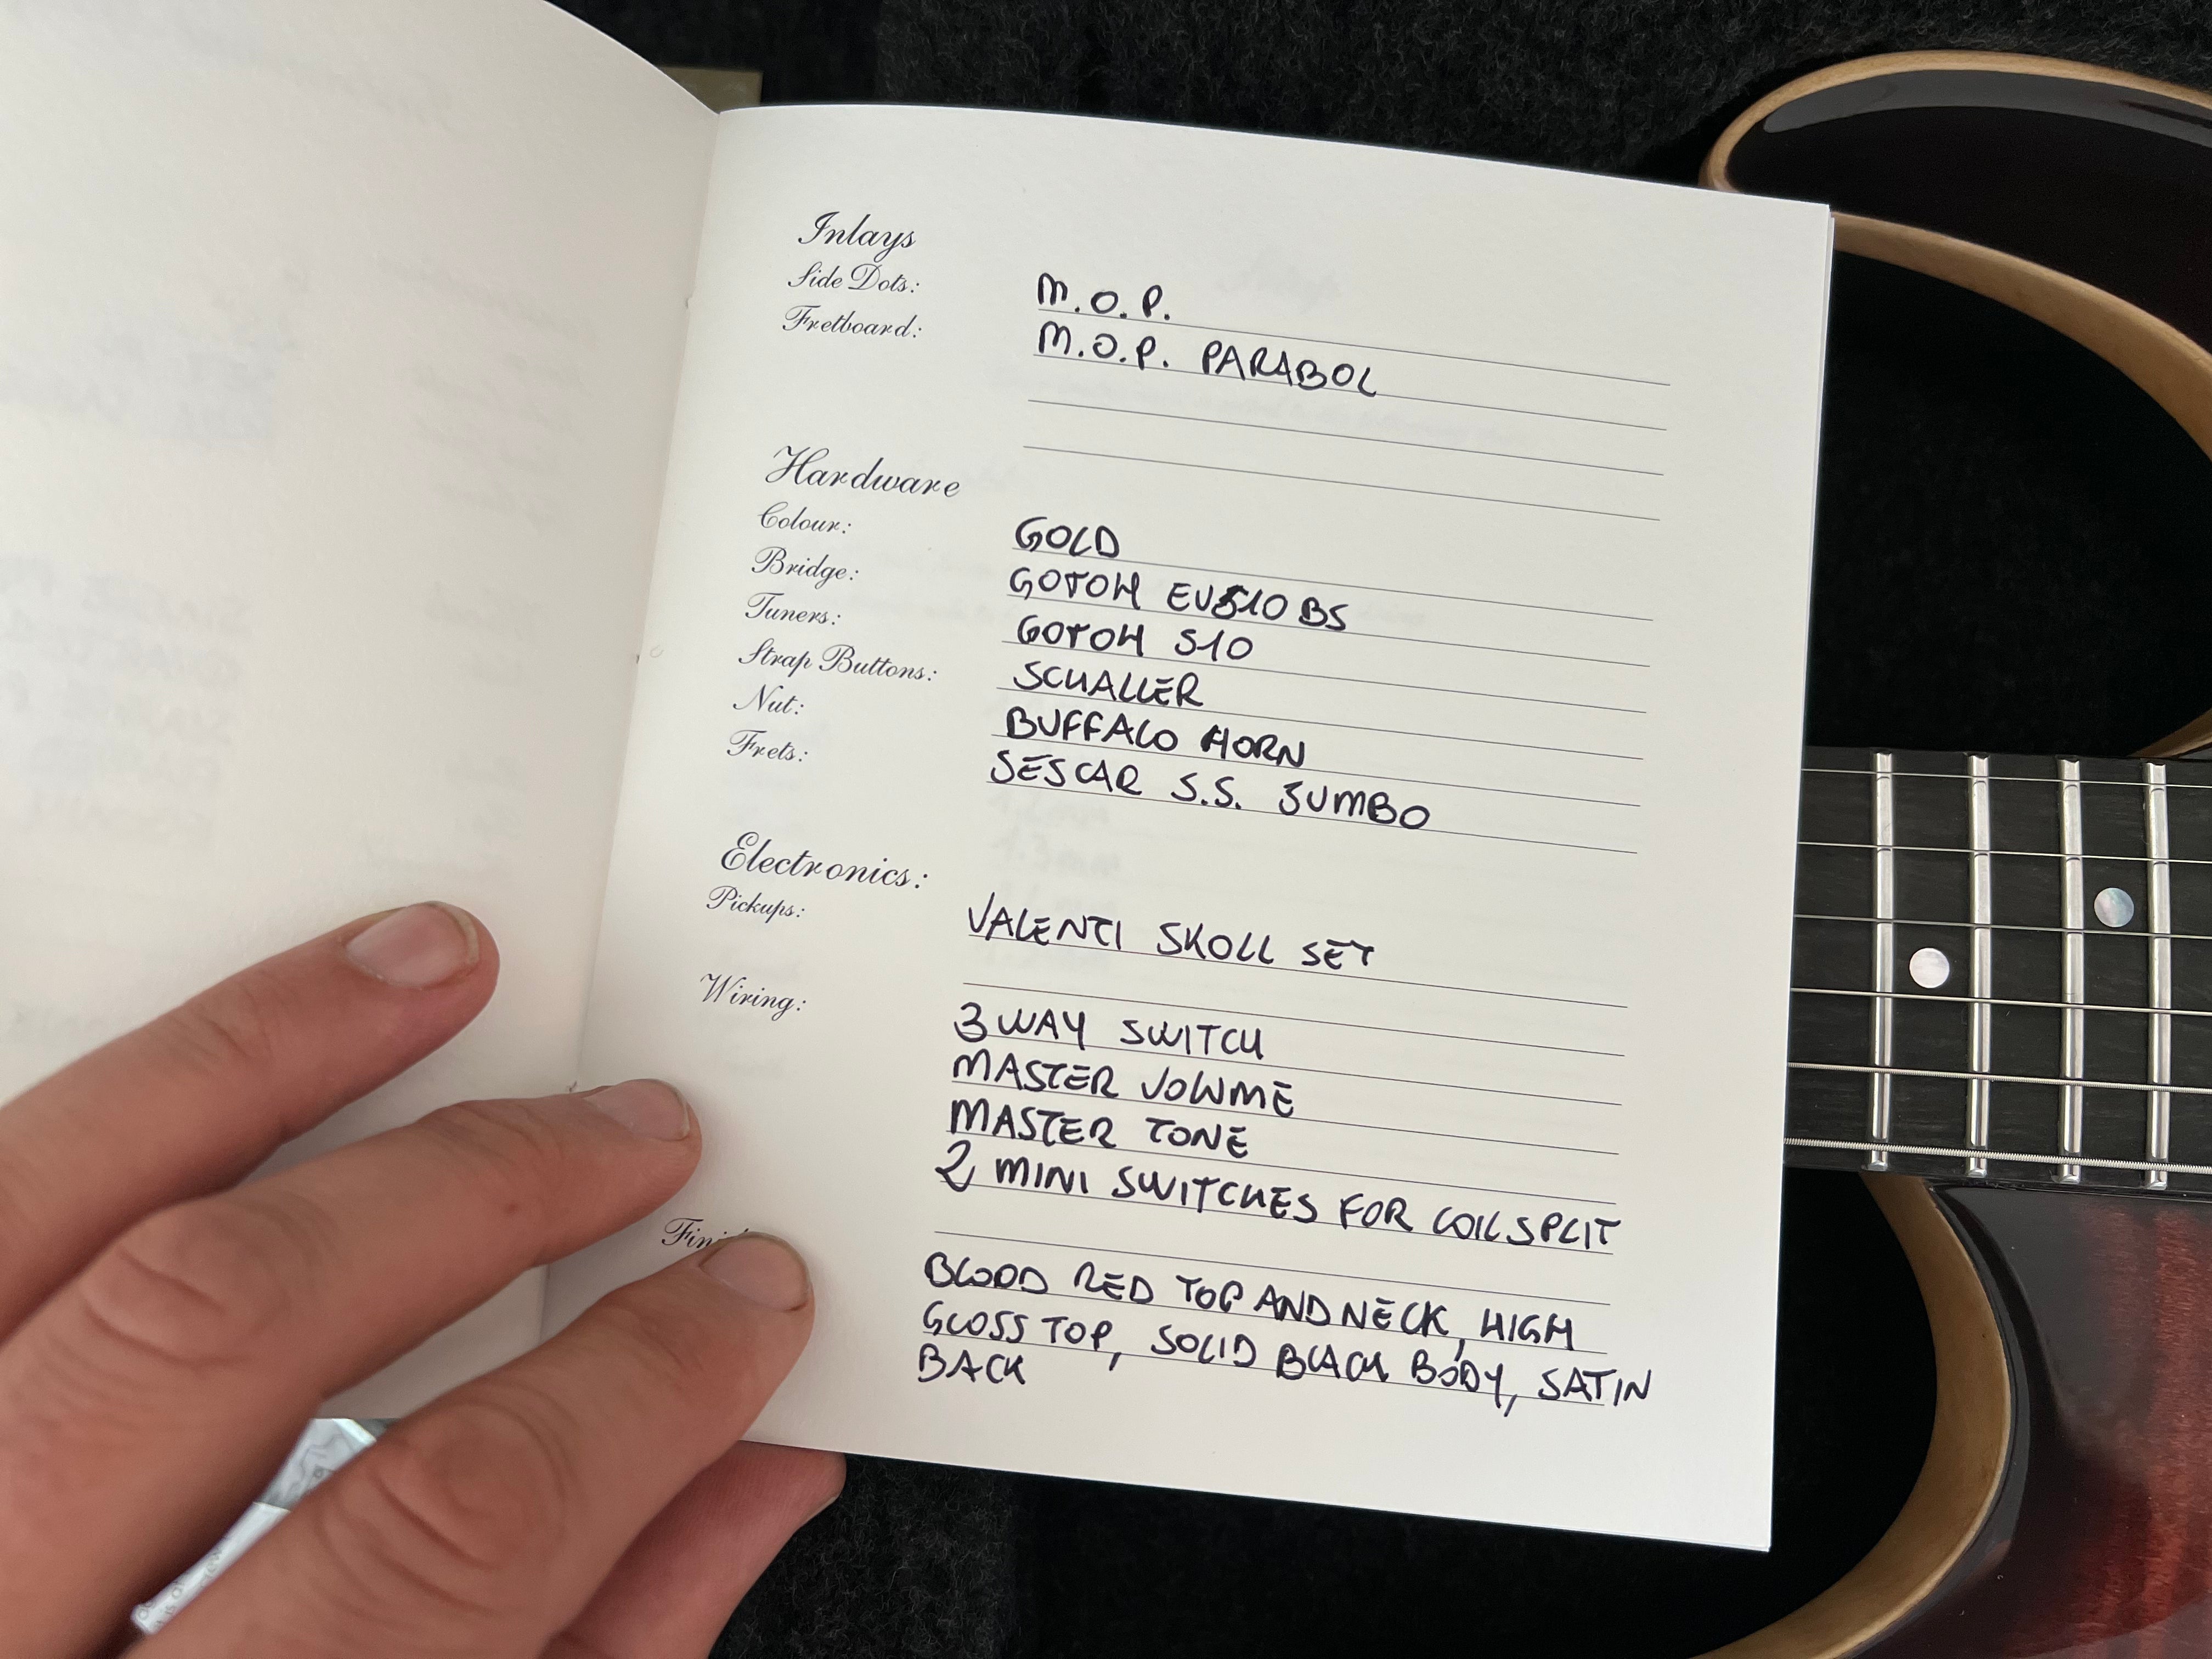 Inlays
Side Dots: M.O.P.
Fretboard: M.O.P. PARABOL
Hardware
Colour: GOLD
Bridge: GOTOH EV510 BS
Tuners: GOTOH 510
Strap Buttons: SCHALLER
Nut: BUFFALO HORN
Frets: SESCAR S.S. JUMBO
Electronics:
Pickups: VALENTI SKOLL SET
Wiring: 3 WAY SWITCH
MASTER VOLUME
MASTER TONE
2 MINI SWITCHES FOR COILSPLIT
BLOOD RED TOP AND NECK, HIGH
GLOSS TOP, SOLID BLACK BODY, SATIN
BACK